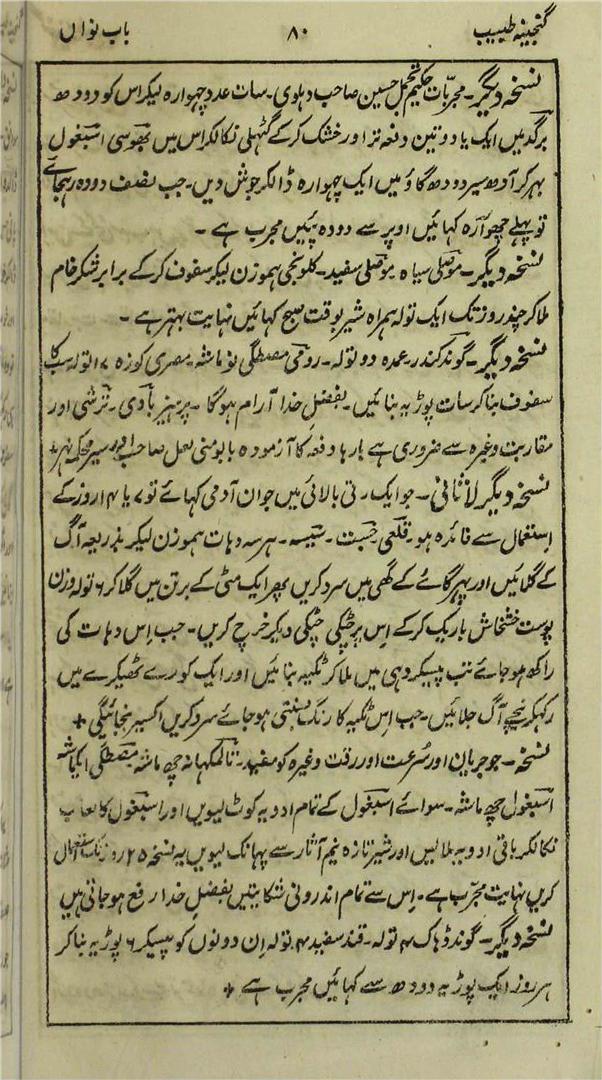 گنجینہ طبیب ۸۰ باب نواں
نسخہ دیگر۔ مجربات حکیم تجمل حسین صاحب دہلوی۔ سات عدد چہوارہ لیکر اس کو دودھ
برگد میں ایک یا دو تین دفعہ تر اور خشک کر کے گٹہلی نکالکر اس میں بھوسی اسبغول
بہر کر آدھ سیر دودھ گاؤ میں ایک چہوارہ ڈالکر جوش دیں۔ جب نصف دودہ رہجائے
تو پہلے چھوآرہ کہائیں اوپر سے دودہ پئیں مجرب ہے۔
نسخہ دیگر۔ موصلی سیاہ۔ موصلی سفید۔ کلونجی ہموزن لیکر سفوف کر کے برابر شکر خام
ملا کر چند روز تک ایک تولہ ہمراہ شیر بوقت صبح کہائیں نہایت بہتر ہے۔
نسخہ دیگر۔ گوند کندر عمدہ دو تولہ۔ رومی مصطگی نو ماشہ۔ مصری کوزہ ۷ تولہ سب کا
سفوف بنا کر سات پوڑیہ بنائیں۔ بفضل خدا آرام ہو گا۔ پرہیز بادی۔ ترشی اور
مقاربت وغیرہ سے ضروری ہے بارہا دفعہ کا آزمودہ بابو منی لعل صاحب
نسخہ دیگر لاثانی۔ جو ایک رتی بالائی میں جوان آدمی کہائے تو ۷ یا ۱۴ روز کے
استعمال سے فائدہ ہو۔ قلعی۔ جست۔ سیسہ۔ ہر سہ دہات ہموزن لیکر بذریعہ آگ
کے گلائیں اور پہر گائے کے گھی میں سرد کریں پھر ایک مٹی کے برتن میں گلا کر ۶ تولہ وزن
پوست خشخاش باریک کر کے اس پر چٹکی چٹکی دیکر خرچ کریں۔ جب اس دہات کی
راکھ ہو جائے تب پیسکر دہی میں ملا کر ٹکیہ بنائیں اور ایک کورے ٹھیکرے میں
رکہکر نیچے آگ جلائیں۔ جب اس ٹکیہ کا رنگ بسنتی ہو جائے سرد کریں اکسیر بنجائیگی +
نسخہ۔ جو جریان اور سرعت اور رقت وغیرہ کو مفید۔ تالمکہانہ چھ ماشہ مصطگی ایکماشہ
اسبغول چھ ماشہ۔ سوائے اسبغول کے تمام ادویہ کوٹ لیویں اور اسبغول کا لعاب
نکالکر باقی ادویہ ملا لیں اور شیر تازہ نیم آثار سے پہانک لیویں یہ نسخہ ۲۵ روز تک استعمال
کریں نہایت مجرب ہے۔ اس سے تمام اندرونی شکایتیں بفضل خدا رفع ہو جاتی ہیں
نسخہ دیگر۔ گوند ڈہاک ۴ تولہ۔ قند سفید ۴ تولہ ان دونوں کو پیسکر ۶ پوڑیہ بنا کر
ہر روز ایک پوڑیہ دودھ سے کہائیں مجرب ہے +